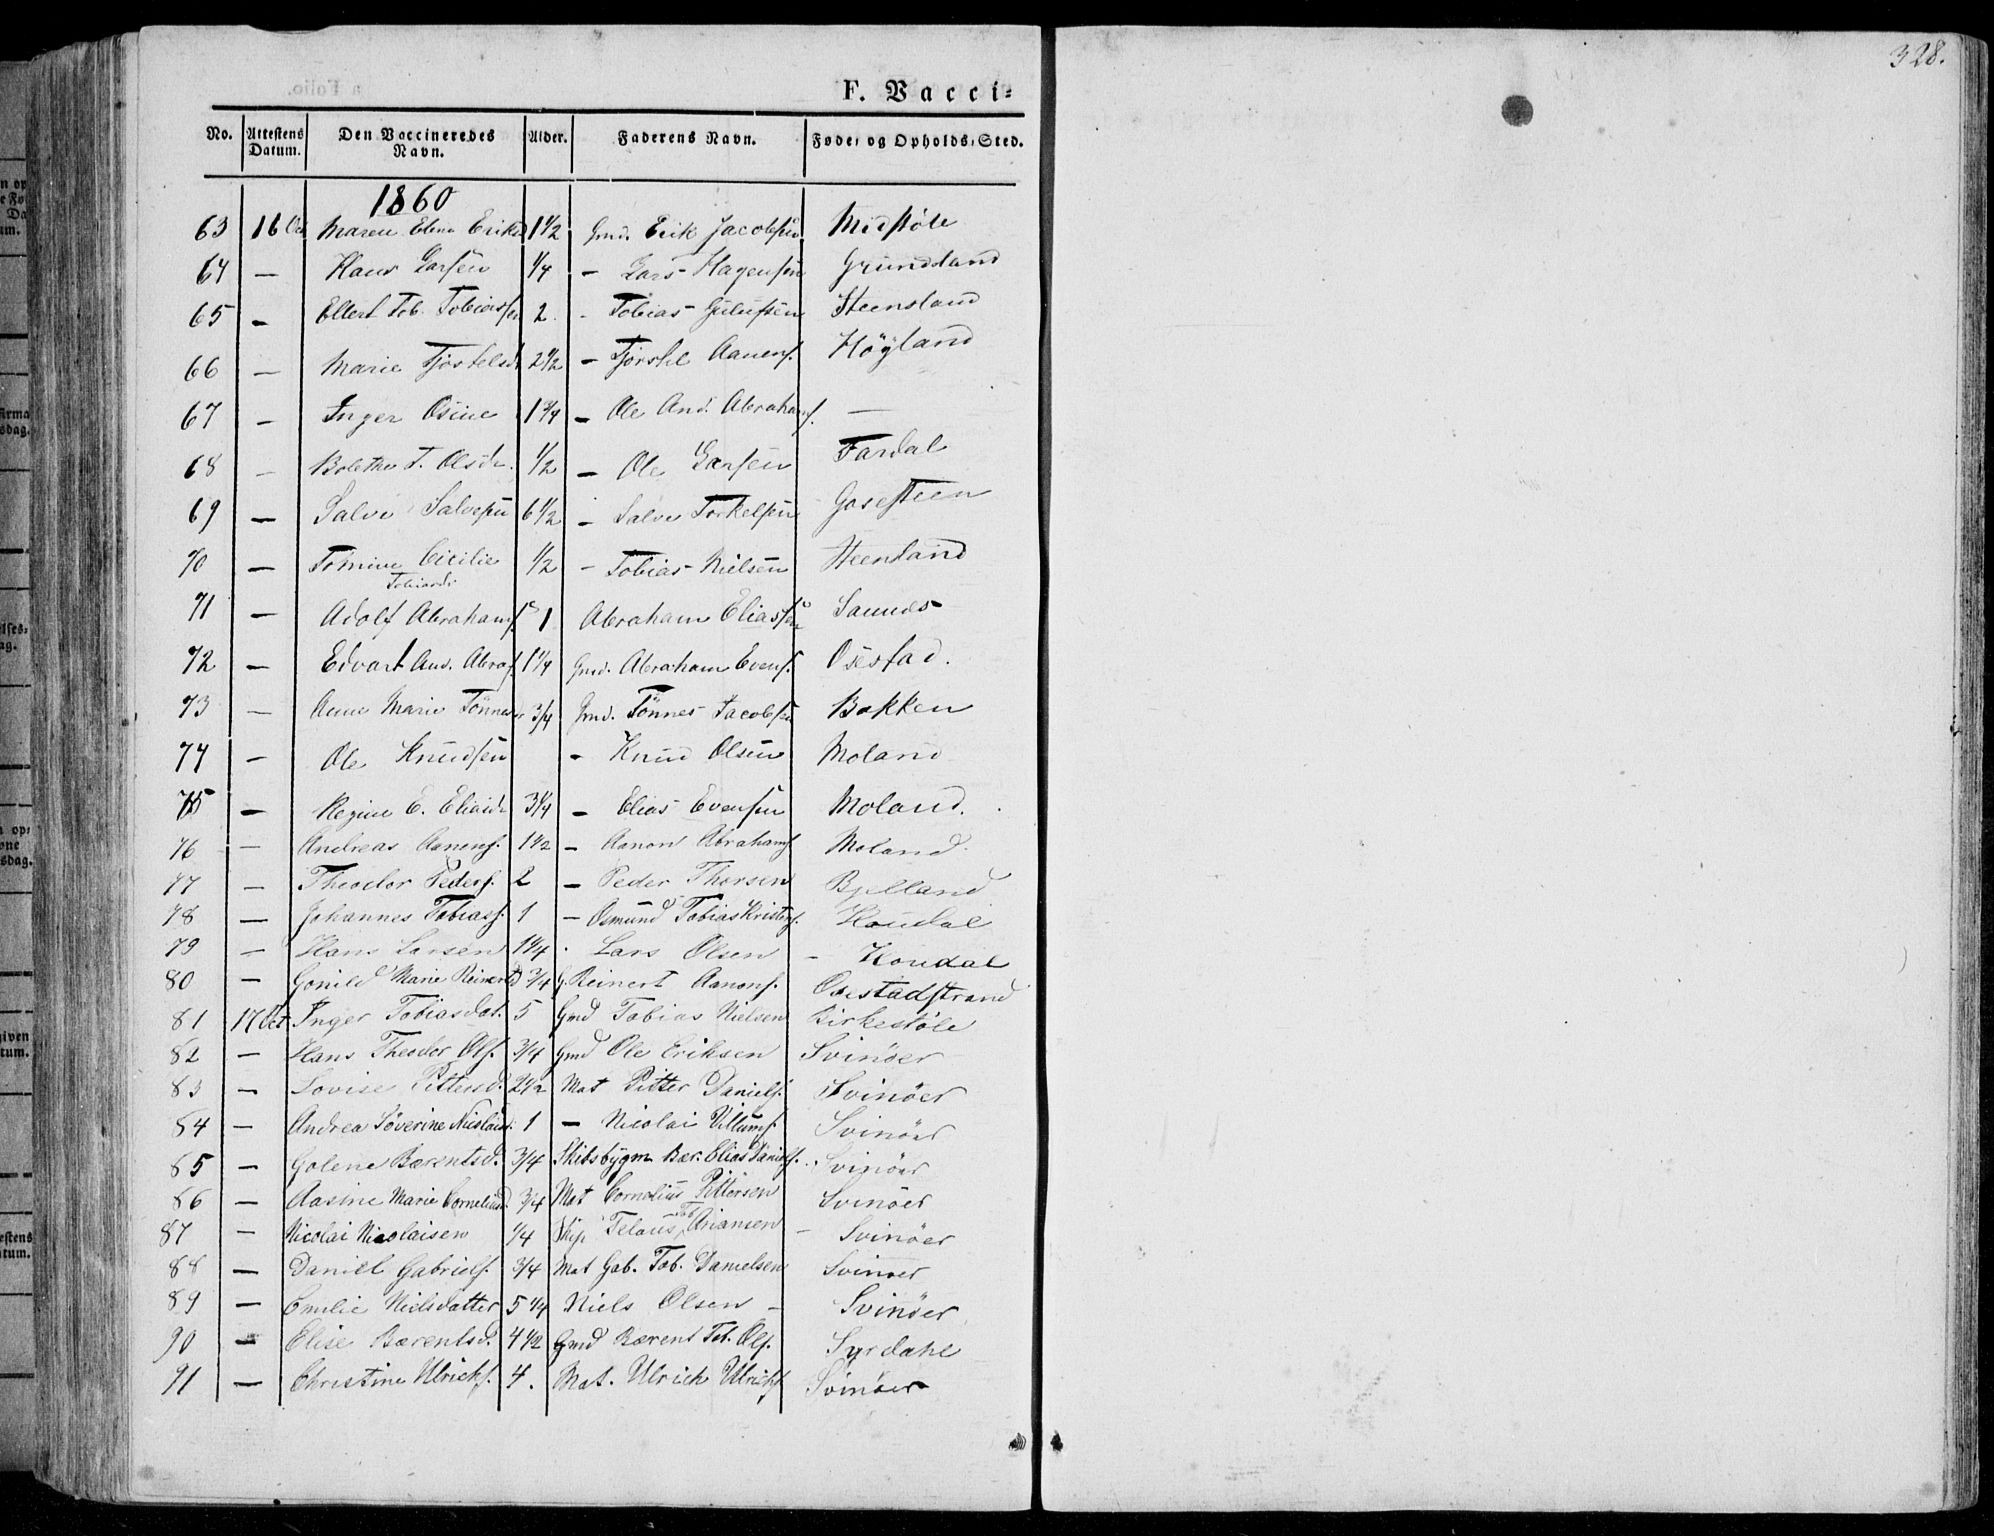 328.
F. Vacci⸗
No. Attestens Datum. Den Vaccineredes Navn. Alder. Faderens Navn. Føde⸗ og Opholds⸗Sted.
1860
63 16 Oct Maren Elene Eriksd 1 1/2 Gmd. Erik Jacobsen Midstöle
64 — Hans Larsen 1/4 — Lars Hagensen Grundland
65 — Ellert Tob. Tobiassen 2 - Tobias Gulufsen Steensland
66 — Marie Tjostelsd 2 1/2 — Tjorstel Aanens. Höyland
67 — Inger Osine 1 3/4 — Ole And. Abrahams. —
68 — Bolethe T. Olsdr. 1/2 — Ole Larsen Fardal
69 — Salve Salvesen 6 1/2 — Salve Torkelsen Gasesteen
70 — Tomine Cicilie 1/2 — Tobias Nielsen Steenland
Tobiasdr
71 — Adolf Abrahams. 1 Abraham Eliassen Saunes
72 — Edvart And. Abraf. 1 1/4 Gmd. Abraham Evens. Osestad.
73 — Anne Marie Tönnesdr 3/4 Gmd. Tönnes Jacobsen Bakken
74 — Ole Knudsen - Knud Olsen Moland
75 — Regine E. Eliasdr 3 1/4 — Elias Evensen Moland.
76 — Andreas Aanens. 1 1/2 — Aanon Abrahams. Moland
77 — Theodor Peders. 2 — Peder Thorsen Bjelland
78 — Johannes Tobiass. 1 — Osmund Tobias Kristens. Houdal
79 — Hans Larsen 1 1/4 . Lars Olsen - Houdal
80 — Gonild Marie Reinertsd 3/4 G. Reinert Aanons. Osestadstrand
81 17 Oct Inger Tobiasdat. 5 Gmd Tobias Nielsen Birkestöle
82 — Hans Theodor Ols. 3/4 Gmd Ole Eriksen Svinöer
83 — Lovise Pittersd. 2 1/2 Mat Pitter Daniels. Svinöer
84 — Andrea Söverine Nicolaisd. 1 — Nicolai Villums. Svinöer
85 — Golene Bærentsd. 3/4 Skibsbygm. Bær. Elias Daniels. Svinöer
86 — Aasine Marie Corneliusd. 3/4 Mat Cornelius Pittersen Svinöer
87 — Nicolai Nicolaisen 1/4 Skip Telaus Tob. Ariansen - Svinöer
88 — Daniel Gabriels. 3/4 Mat Gab. Tob. Danielsen Svinöer
89 — Emilie Nielsdatter 5 1/4 Niels Olsen - Svinöer
90 — Elise Bærentsd. 4 1/2 Gmd Bærent Tob. Ols. Syrdahl
91 — Christine Ulrichs. 4. Mat. Ulrich Ulrichs. Svinöer